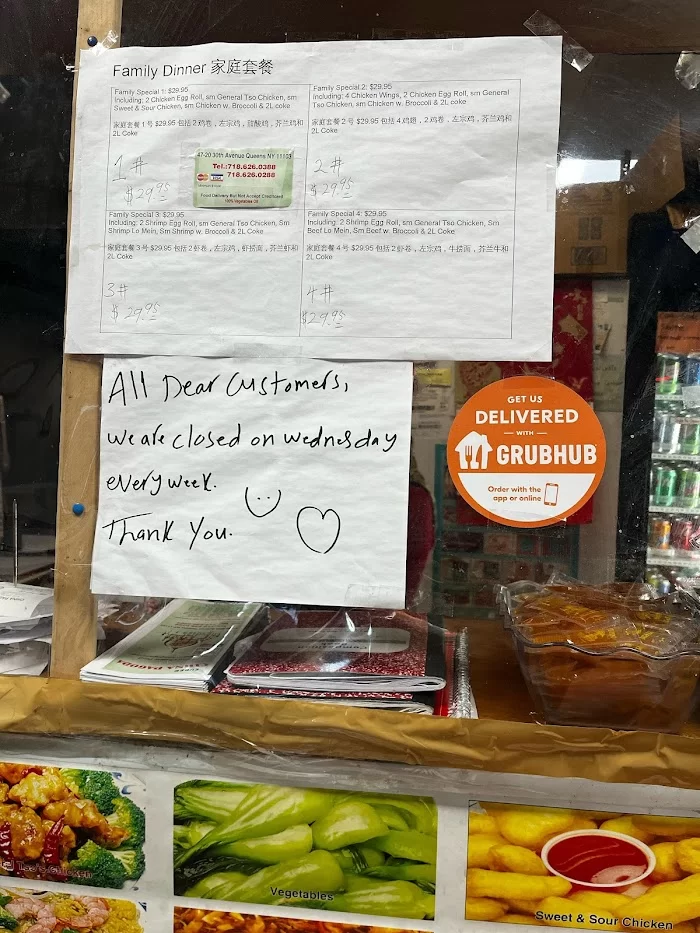 Family Dinner 家庭套餐
Family Special 1: $29.95
Including: 2 Chicken Egg Roll, sm General Tso Chicken, sm
Sweet & Sour Chicken, sm Chicken w. Broccoli & 2L coke
家庭套餐1号 $29.95 包括2鸡卷，左宗鸡，甜酸鸡，芥兰鸡和
2L Coke
1#
$29.95
47-20 30th Avenue Queens NY 11103
Tel.:718.626.0388
718.626.0288
Food Delivery But Not Accept Creditcard
100% Vegetables Oil
Family Special 2: $29.95
Including: 4 Chicken Wings, 2 Chicken Egg Roll, sm General
Tso Chicken, sm Chicken w. Broccoli & 2L coke
家庭套餐2号 $29.95 包括4鸡翅，2鸡卷，左宗鸡，芥兰鸡和
2L Coke
2#
$29.95
Family Special 3: $29.95
Including: 2 Shrimp Egg Roll, sm General Tso Chicken, Sm
Shrimp Lo Mein, Sm Shrimp w. Broccoli & 2L Coke
家庭套餐3号 $29.95 包括2虾卷，左宗鸡，虾捞面，芥兰虾和
2L Coke
3#
$29.95
Family Special 4: $29.95
Including: 2 Shrimp Egg Roll, sm General Tso Chicken, Sm
Beef Lo Mein, Sm Beef w. Broccoli & 2L Coke
家庭套餐4号 $29.95 包括2虾卷，左宗鸡，牛捞面，芥兰牛和
2L Coke
4#
$29.95
All Dear Customers,
we are closed on wednesday
every week.
Thank You.
GET US
DELIVERED
WITH
GRUBHUB
Order with the
app or online
Tso's Chicken
Vegetables
Sweet & Sour Chicken